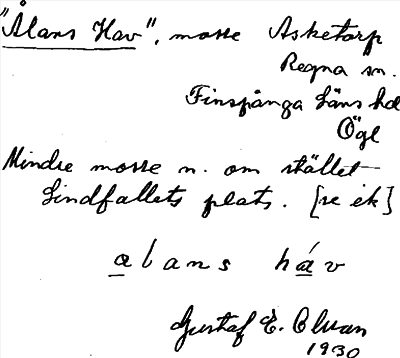 "Ålans Hav", mosse Asketorp
Regna sn.
Finspånga Läns hd
Ögl
Mindre mosse n. om stället
Lindfallets plats. [se ek]
a l a n s h á v
Gustaf E.
1930